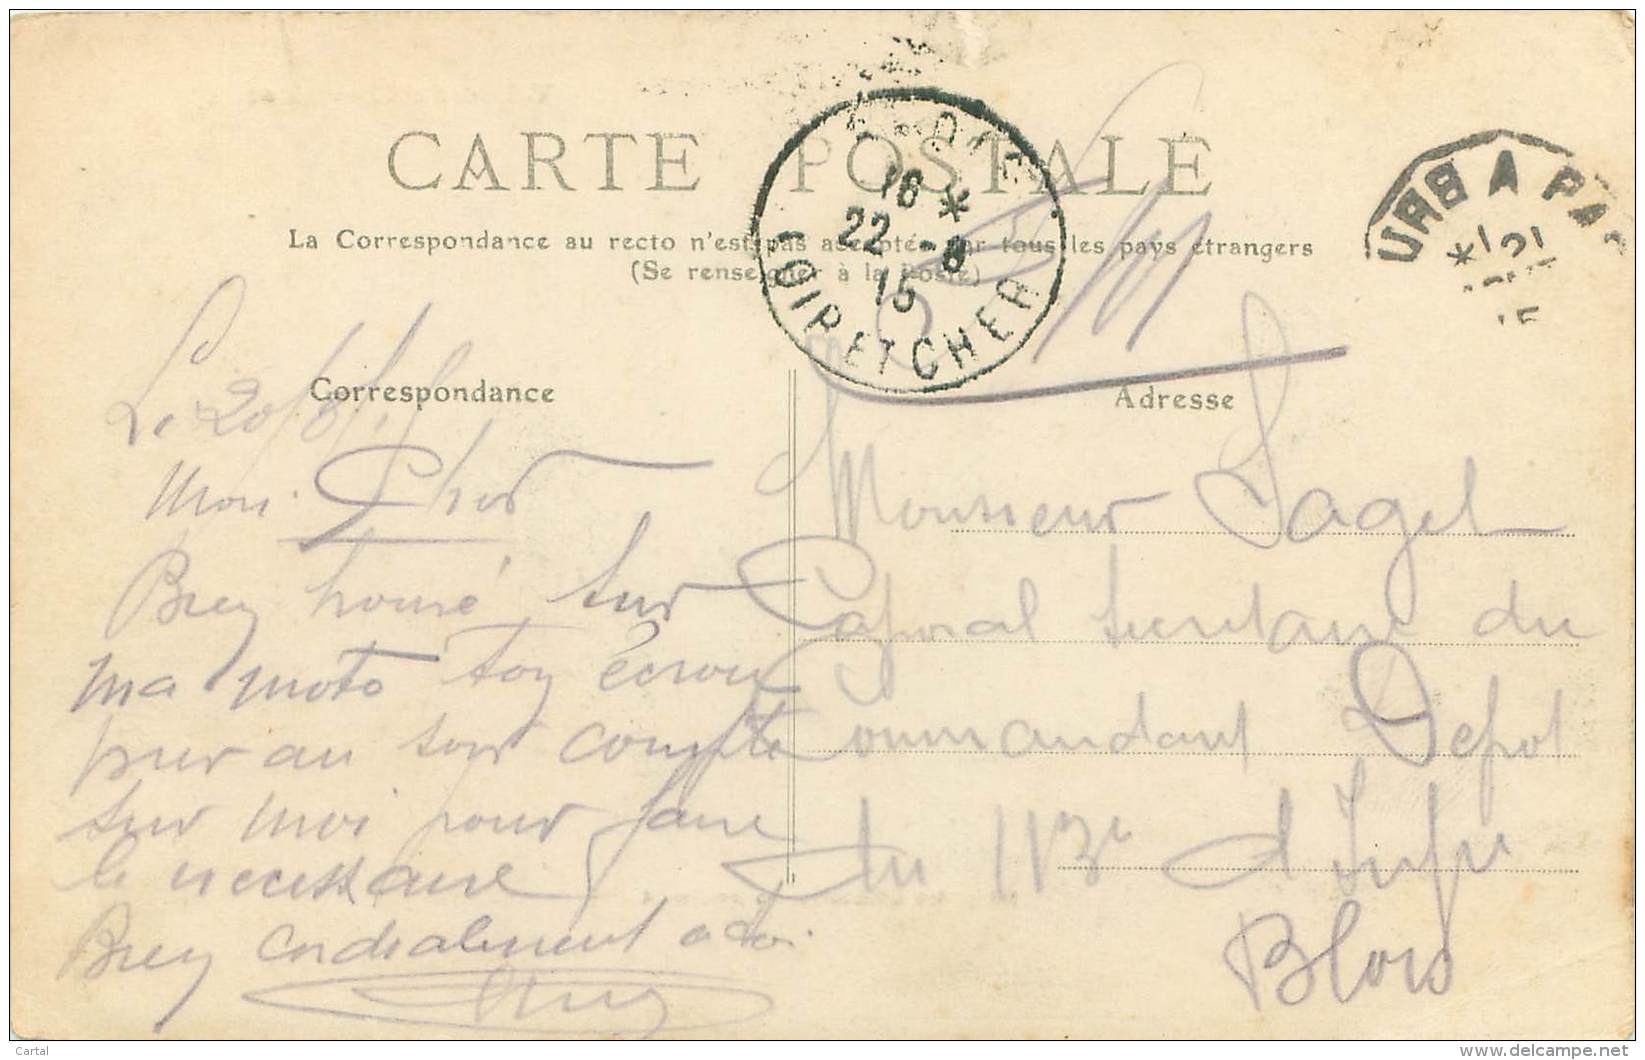 CARTE POSTALE
La Correspondance au recto n'est pas acceptée par tous les pays étrangers
(Se renseigner à la Poste)
18 *
22 - 8
15
LOIR ET CHER
URB A PA
Correspondance
Adresse
Le 20/8/15
Mon Cher
Bien trouvé sur
ma moto ton écrou
pur au soir compte
sur moi pour faire
le nécessaire
Bien cordialement à toi
Monsieur Lagel
Caporal secrétaire du
Commandant Depot
du 113e d Infie
Blois
Cartal
delcampe.net